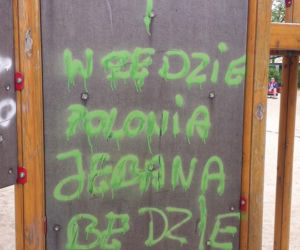 !
WSZĘDZIE
POLONIA
JEBANA
BĘDZIE